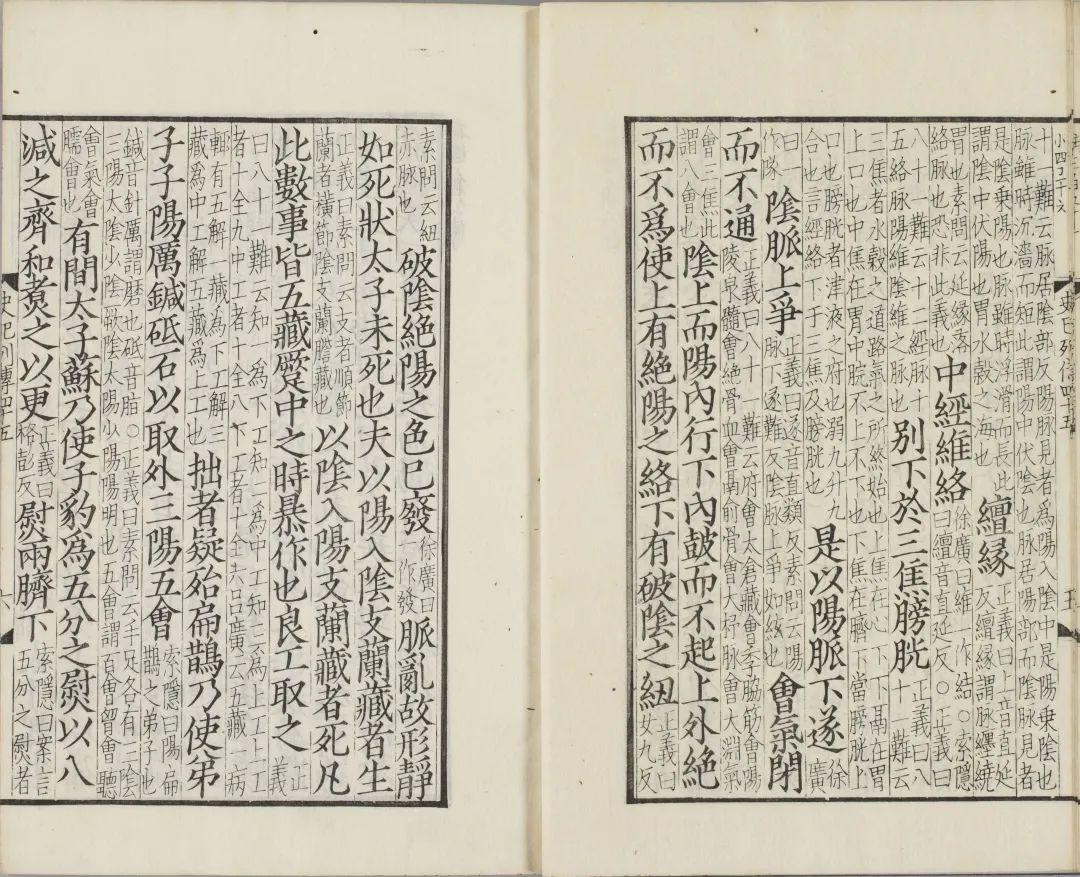 十難云脉居陰部反陽脉見者為陽入陰中是陽乗陰也脉雖時沉濇而短此謂陽中伏陰也脉居陽部而陰脉見者
是陰乗陽也脉雖時浮滑而長此謂陰中伏陽也胃水榖之海也繵緣正義曰上音直延反繵緣謂脉纒繞
胃也素問云延緣落絡脉也恐非此義也中經維絡徐廣曰維一作結○索隱曰繵音直延反○正義曰
八十一難云十二經脉十五絡脉陽維陰維之脉也別下於三焦膀胱正義曰八十一難云
三焦者水榖之道路氣之所終始也上焦在心下下鬲在胃上口也中焦在胃中脘不上不下也下焦在臍下當膀胱上
口也膀胱者津液之府也溺九升九合也言經絡下于三焦及膀胱也是以陽脈下遂徐廣
曰一作隊陰脈上爭正義曰遂音直類反素問云陽脉下遂難反陰脉上爭如絃也會氣閉
而不通正義曰八十一難云府會太倉藏會季脇筋會陽陵泉髓會絕骨血會鬲俞骨會大杼脉會大淵氣
會三焦此謂八會也陰上而陽內行下內鼓而不起上外絕
而不爲使上有絕陽之絡下有破陰之紐正義曰女九反
素問云紐赤脉也破陰絕陽之色已發徐廣曰一作發脈亂故形靜
如死狀太子未死也夫以陽入陰支蘭藏者生
正義曰素問云支者順節蘭者橫節陰支蘭膽藏也以陰入陽支蘭藏者死凡
此數事皆五藏蹷中之時暴作也良工取之正義
曰八十一難云知一為下工知二為中工知三為上工上工者十全九中工者十全八下工者十全六呂廣云五藏一病
輒有五解一藏為下工解三藏為中工解五藏爲上工也拙者疑殆扁鵲乃使弟
子子陽厲鍼砥石以取外三陽五會索隱曰陽扁鵲之弟子也
鍼音針厲謂磨也砥音脂○正義曰素問云手足各有三陰三陽太陰少陰厥陰太陽少陽陽明也五會謂百會胷會聽
會氣會臑會也有間太子蘇乃使子豹為五分之熨以八
減之齊和煑之以更正義曰格彭反熨兩脅下索隱曰案言五分之熨者
史記列傳四十五
六